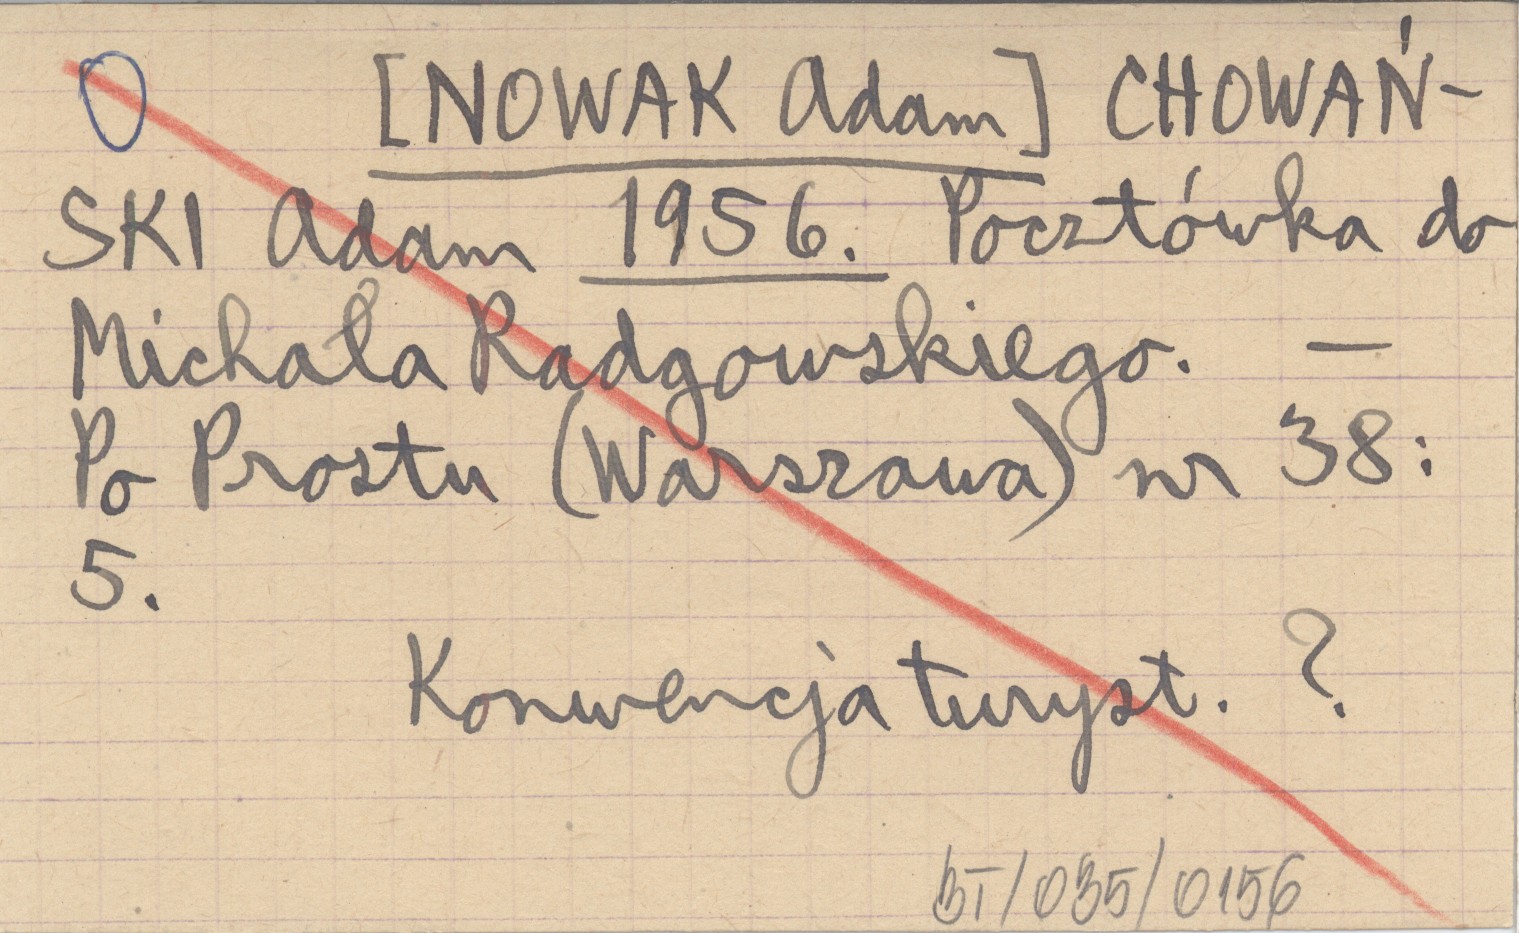 [NOWAK Adam] CHOWAŃ-
SKI Adam 1956. Pocztówka do
Michała Radgowskiego. —
Po Prostu (Warszawa) nr 38:
5.
Konwencja turyst. ?
BT/035/0156